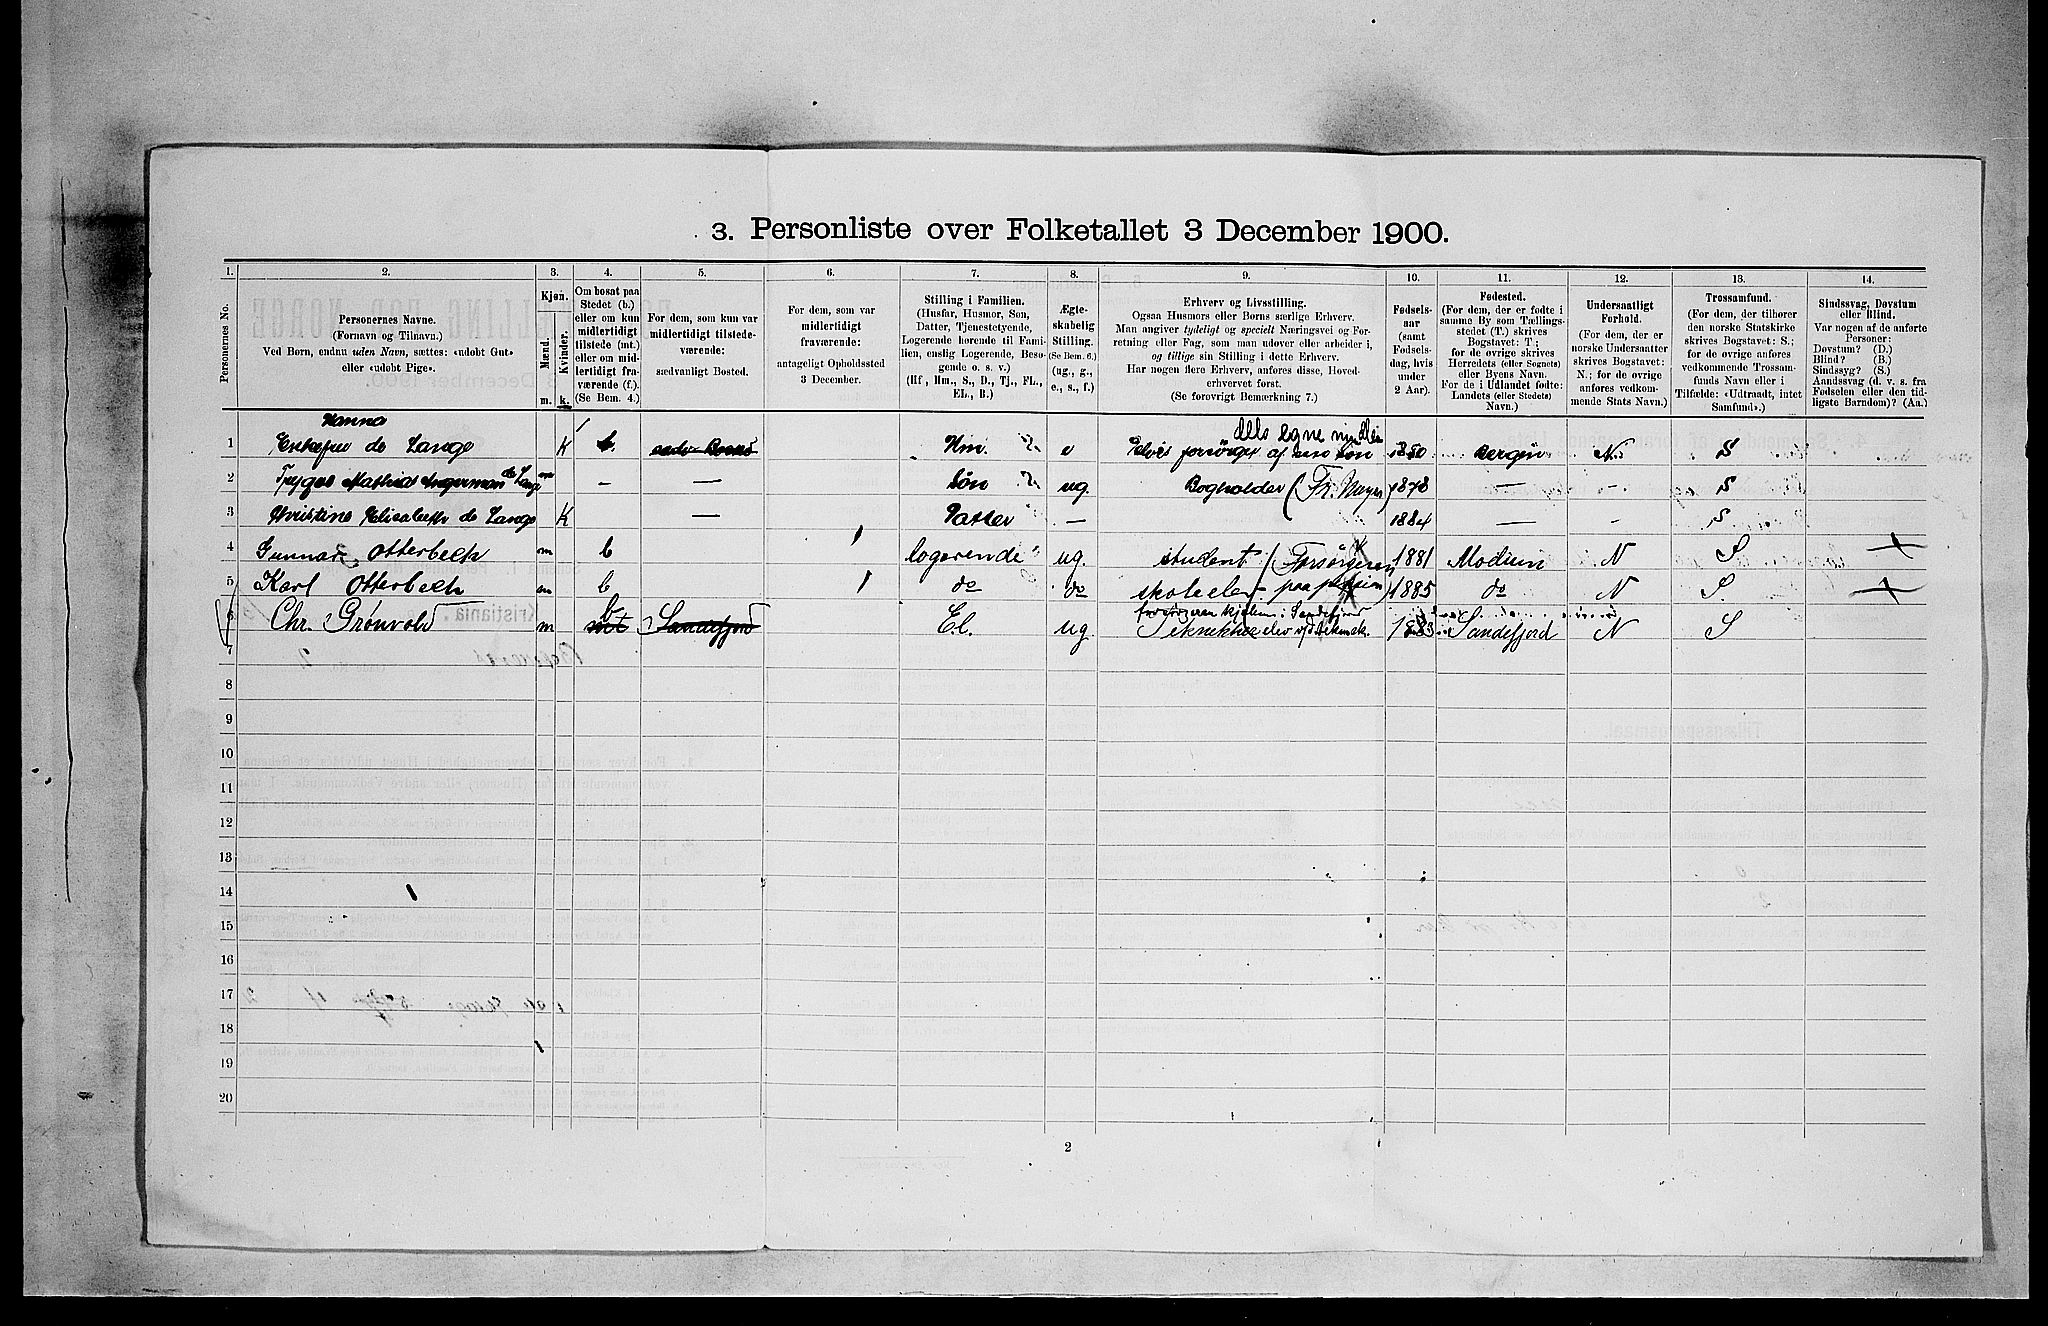 3. Personliste over Folketallet 3 December 1900.
1. 2. 3. 4. 5. 6. 7. 8. 9. 10. 11. 12. 13. 14.
Personernes No.
Personernes Navne.
(Fornavn og Tilnavn.)
Ved Børn, endnu uden Navn, sættes: «udøbt Gut»
eller «udøbt Pige».
Kjøn.
Mænd.
Kvinder.
m. k.
Om bosat paa
Stedet (b.)
eller om kun
midlertidigt
tilstede (mt.)
eller om mid-
lertidigt fra-
værende (f.).
(Se Bem. 4.)
For dem, som kun var
midlertidigt tilstede-
værende:
sædvanligt Bosted.
For dem, som var
midlertidigt
fraværende:
antageligt Opholdssted
3 December.
Stilling i Familien.
(Husfar, Husmor, Søn,
Datter, Tjenestetyende,
Logerende hørende til Fami-
lien, enslig Logerende, Besø-
gende o. s. v.)
(Hf., Hm., S., D., Tj., FL.,
EL., B.)
Ægte-
skabelig
Stilling.
(Se Bem. 6.)
(ug., g.,
e., s., f.)
Erhverv og Livsstilling.
Ogsaa Husmors eller Børns særlige Erhverv.
Man angiver tydeligt og specielt Næringsvei og For-
retning eller Fag, som man udøver eller arbeider i,
og tillige sin Stilling i dette Erhverv.
Har nogen flere Erhverv, anføres disse, Hoved-
erhvervet først.
(Se forøvrigt Bemærkning 7.)
Fødsels-
aar
(samt
Fødsels-
dag, hvis
under
2 Aar).
Fødested.
(For dem, der er fødte i
samme By som Tællings-
stedet (T.) skrives
Bogstavet: T.;
for de øvrige skrives
Herredets (eller Sognets)
eller Byens Navn.
For de i Udlandet fødte:
Landets (eller Stedets)
Navn.)
Undersaatligt
Forhold.
(For dem, der er
norske Undersaatter
skrives Bogstavet:
N.; for de øvrige
anføres vedkom-
mende Stats Navn.)
Trossamfund.
(For dem, der tilhører
den norske Statskirke
skrives Bogstavet: S.;
for de øvrige anføres
vedkommende Trossam-
funds Navn eller i
Tilfælde: «Udtraadt, intet
Samfund».)
Sindssvag, Døvstum
eller Blind.
Var nogen af de anførte
Personer:
Døvstum? (D.)
Blind? (B.)
Sindssyg? (S.)
Aandssvag (d. v. s. fra
Fødselen eller den tid-
ligste Barndom)? (Aa.)
Hanna dels egne midler
1 Enkefru de Lange K b. Hm. e forsørget af sin Søn 1850 Bergen N. S
2 Trygve Mathias Angerman de Lange m – — Søn ug. Bogholder (Fr. Meyer) 1878 — – S
3 Kristine Elisabeth de Lange K — Datter — 1884 — – S
4 Gunnar Otterbech m b logerende ug. student (Forsørgeren 1881 Modum N S
5 Karl Otterbech m b do do skoleelev paa pension) 1885 do N S
b forsørgeren Kjøbm. i Sandefjord
6 Chr. Grønvold m mt Sandefjord E.l. ug. 1883 Sandefjord N S
7
8
9
10
11
12
13
14
15
16
17
18
19
20
2